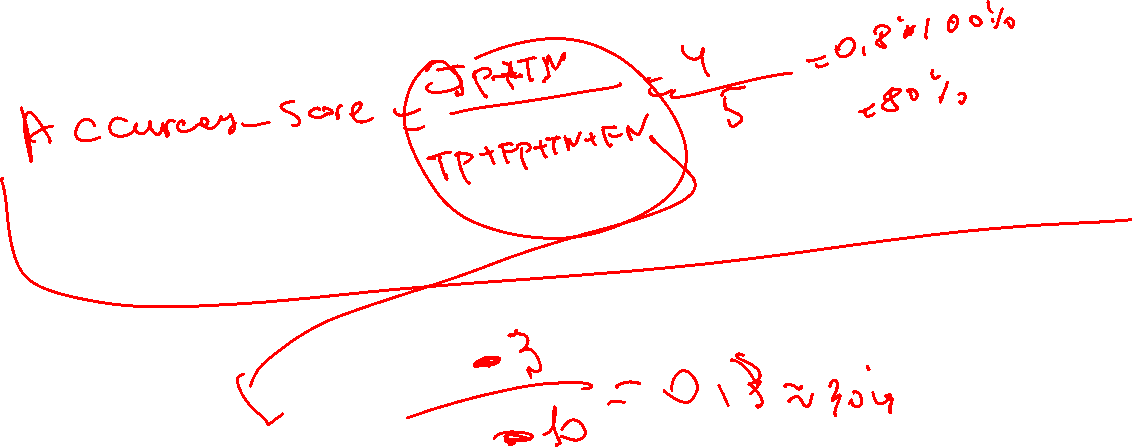 Accuracy_Score = TP+TN / TP+FP+TN+FN = 4/5 = 0.8*100%
=80%
3/10 = 0.3 ≈ 30%